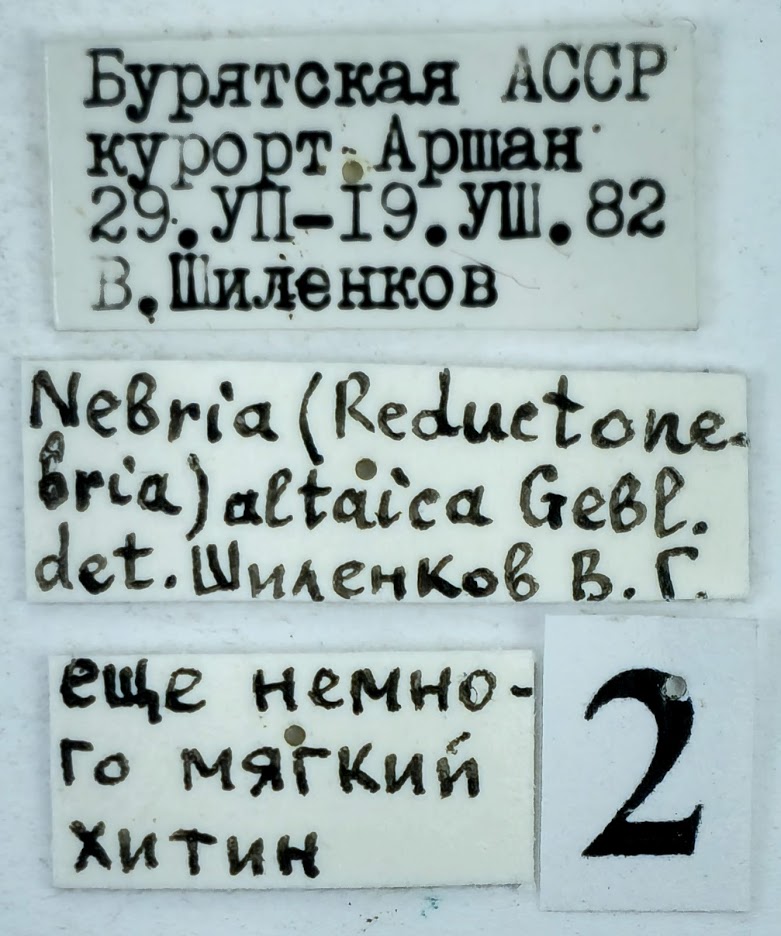 Бурятская АССР
курорт Аршан
29.УП-I9.УШ.82
В.Шиленков
Nebria (Reductone-
bria) altaica Gebl.
det. Шиленков В. Г.
еще немно-
го мягкий
хитин
2